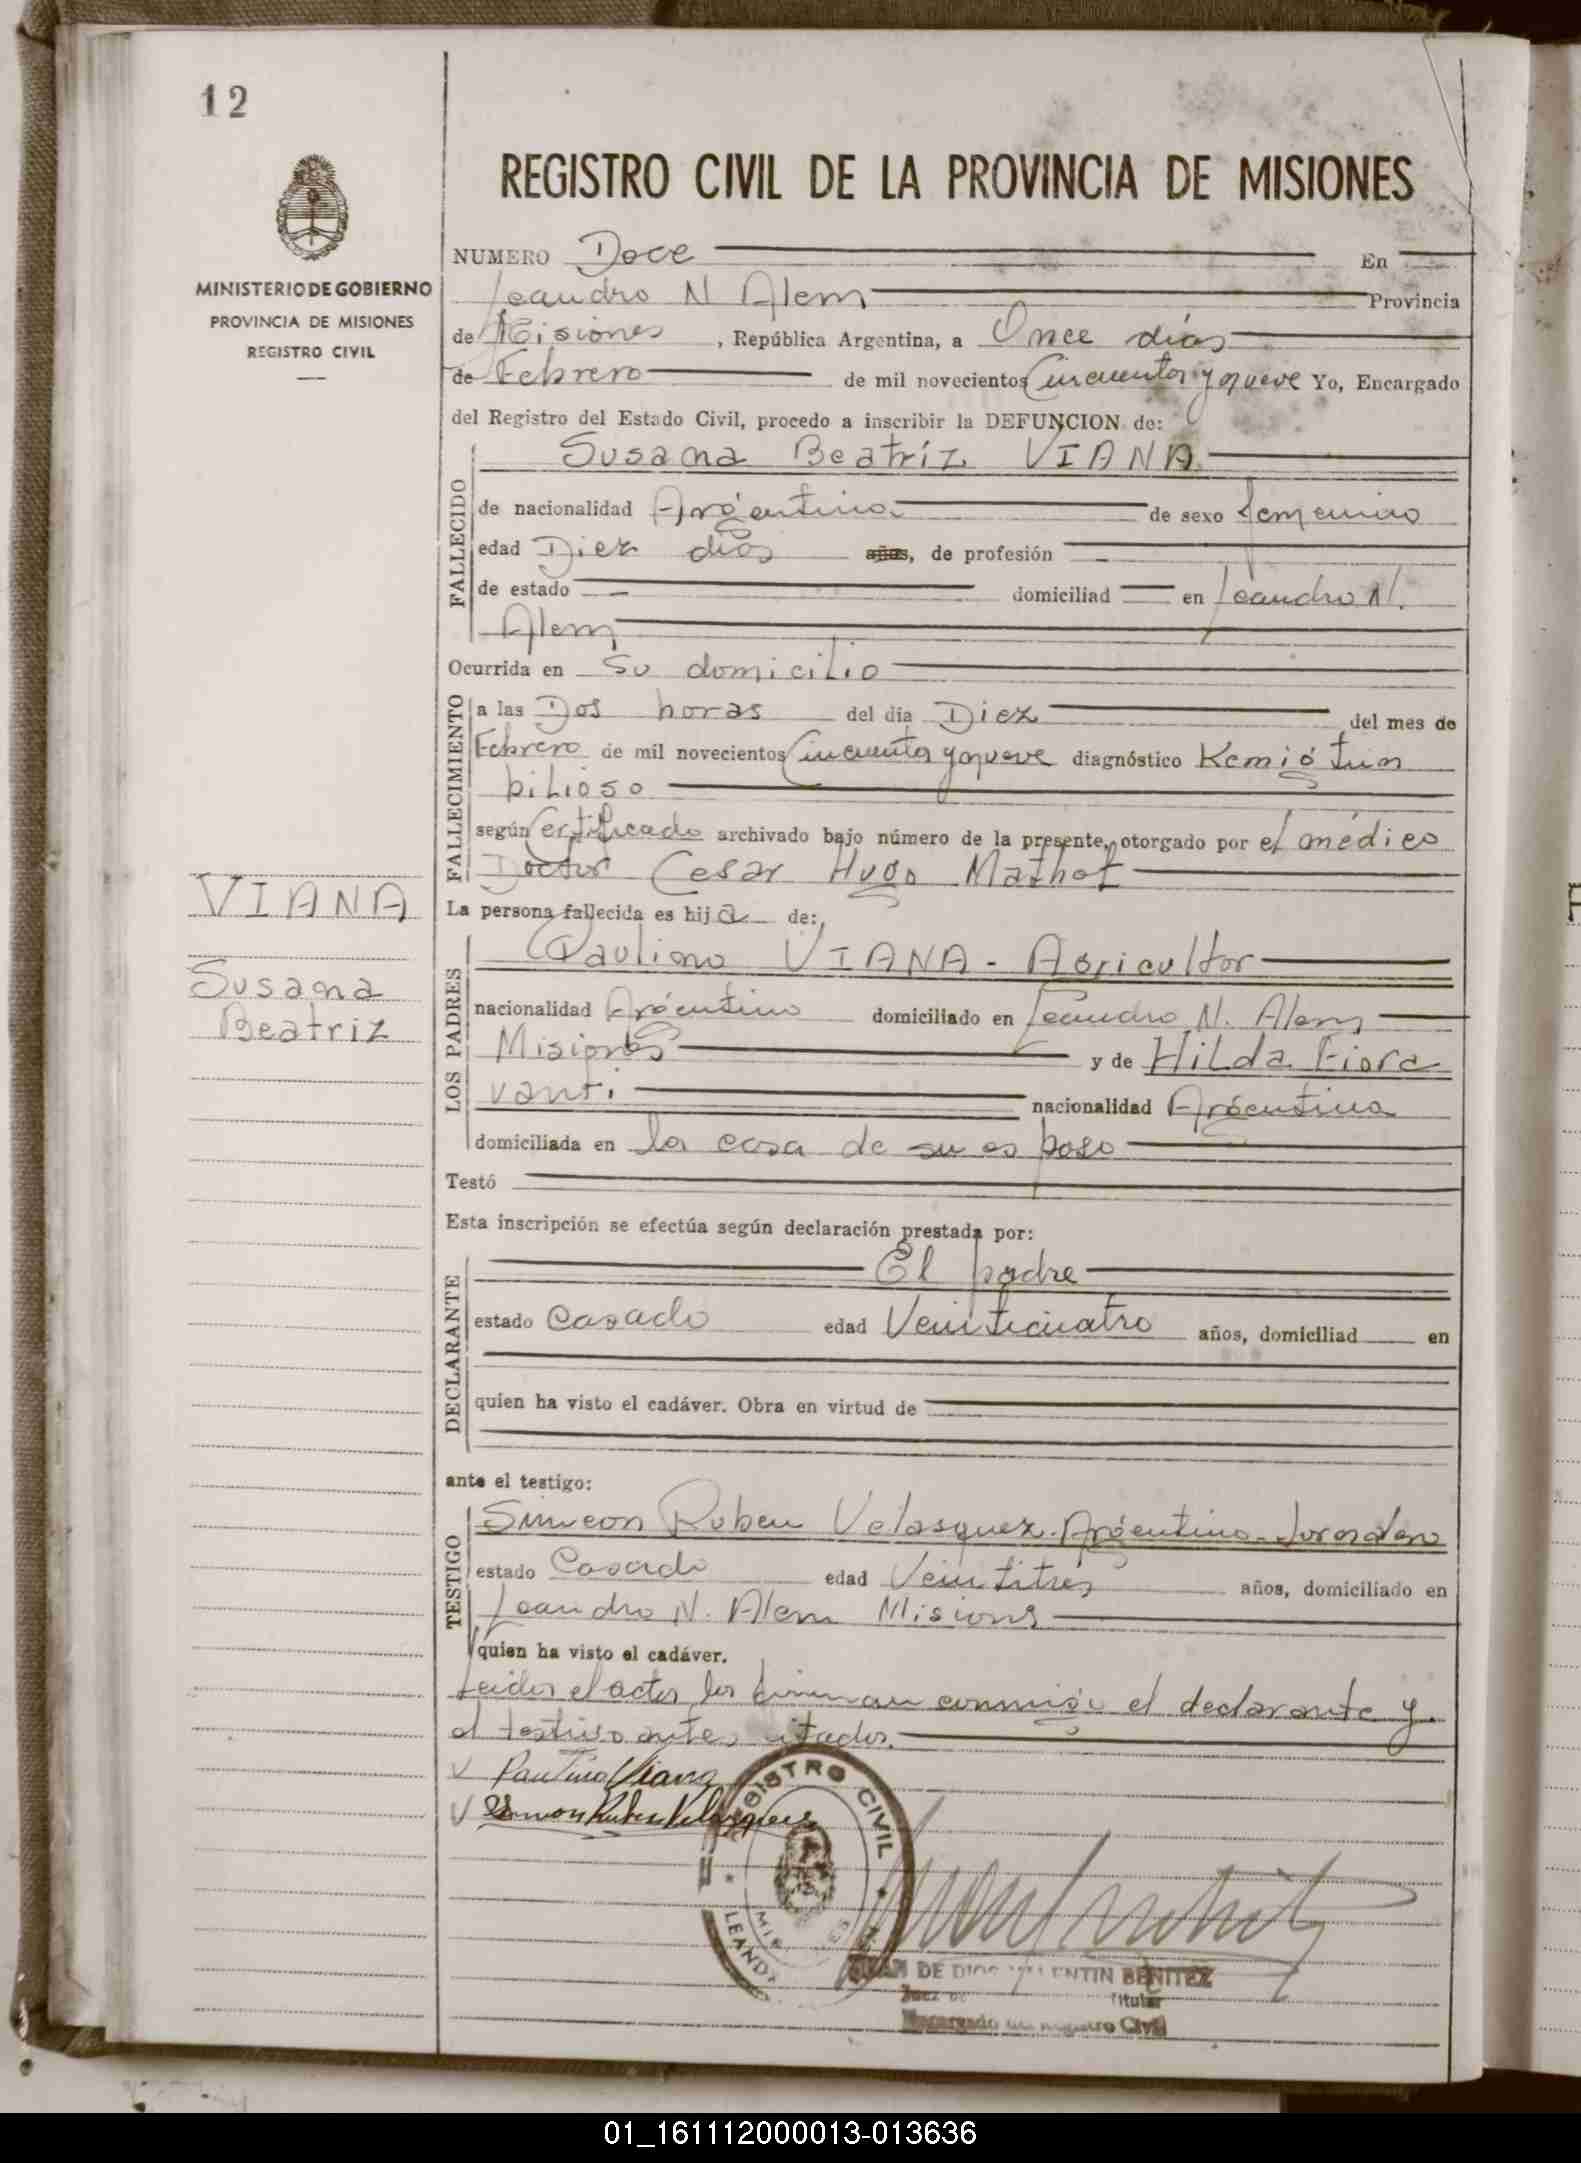 12
MINISTERIO DE GOBIERNO
PROVINCIA DE MISIONES
REGISTRO CIVIL
REGISTRO CIVIL DE LA PROVINCIA DE MISIONES
NUMERO Doce En
Leandro N Alem Provincia
de Misiones, República Argentina, a Once días
de Febrero de mil novecientos Cincuenta y nueve Yo, Encargado
del Registro del Estado Civil, procedo a inscribir la DEFUNCION de:
Susana Beatríz VIANA
FALLECIDO
de nacionalidad Argentina de sexo femenino
edad Diez días años, de profesión
de estado domiciliad en Leandro N.
Alem
Ocurrida en su domicilio
FALLECIMIENTO
a las Dos horas del día Diez del mes de
Febrero de mil novecientos Cincuenta y nueve diagnóstico
bilioso
según Certificado archivado bajo número de la presente, otorgado por el médico
Doctor Cesar Hugo Mathot
VIANA
Susana
Beatriz
La persona fallecida es hija de:
LOS PADRES
Paulino VIANA - Agricultor
nacionalidad Argentino domiciliado en Leandro N. Alem
Misiones y de Hilda Fiora
vanti nacionalidad Argentina
domiciliada en la casa de su esposo
Testó
Esta inscripción se efectúa según declaración prestada por:
DECLARANTE
El padre
estado Casado edad Veinticuatro años, domiciliad en
quien ha visto el cadáver. Obra en virtud de
ante el testigo:
TESTIGO
Simeon Ruben Velasquez. Argentino. Jornalero
estado Casado edad Veintitrés años, domiciliado en
Leandro N. Alem Misiones
quien ha visto el cadáver.
Leida el acta la firman conmigo el declarante y
el testigo antes citados.
Paulino Viana
Simeon Ruben Velasquez
REGISTRO CIVIL
LEAND
JUAN DE DIOS VALENTIN BENITEZ
Juez de Titular
Encargado del Registro Civil
01_161112000013-013636